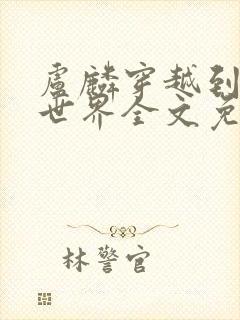 卢麟穿越到
世界全文免
林警官